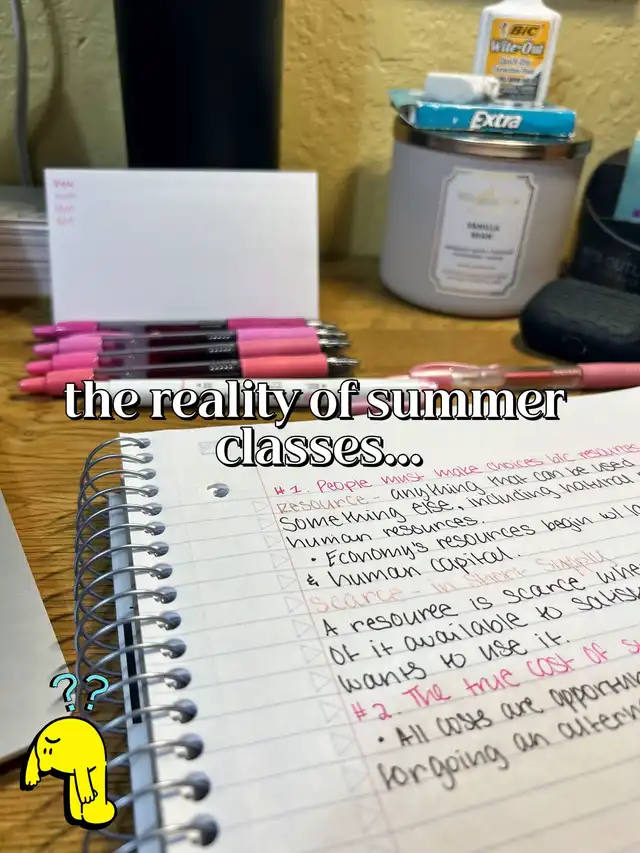 BiC
Wite-Out
Extra
VANILLA
BEAN
the reality of summer
classes...
#1. People must make choices b/c resources
Resource - anything that can be used
something else, including natural
human resources.
• Economy's resources begin w/
& human capital.
Scarce - in short supply
A resource is scarce
of it available to satis
wants to use it.
#2. The true cost of s
• All costs are opportun
forgoing an altern
??